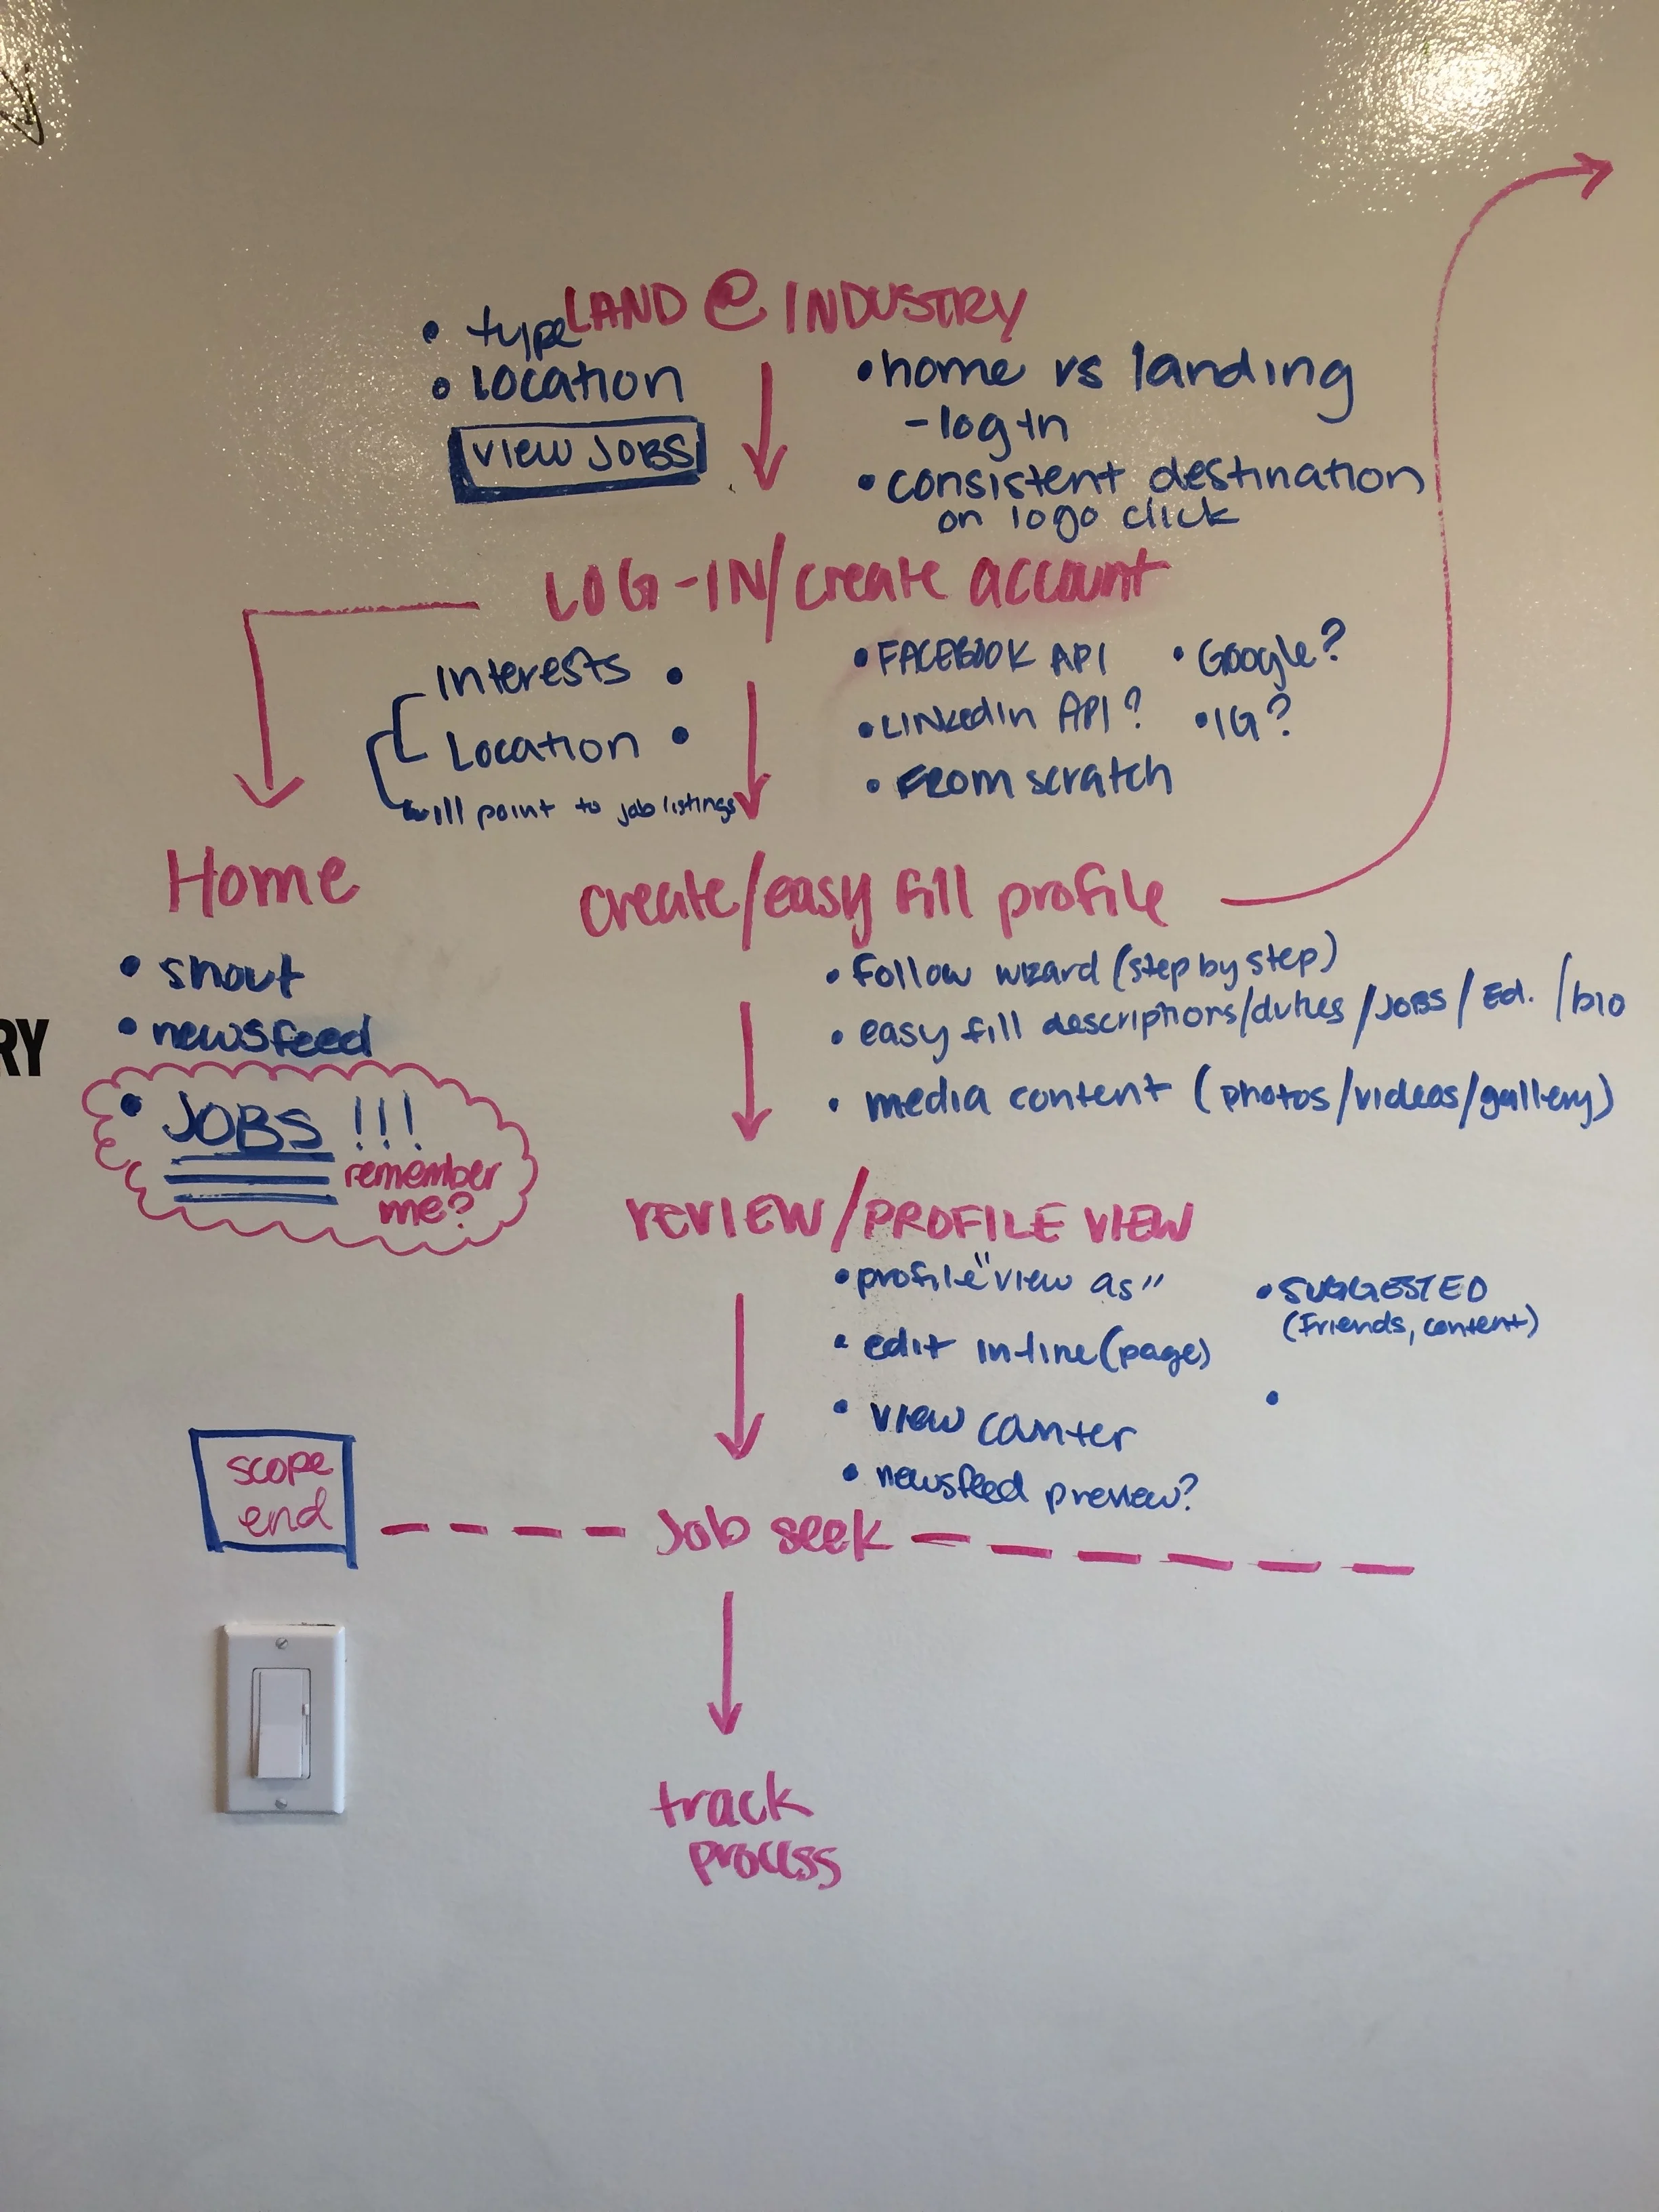 LAND @ INDUSTRY
• type
• Location
VIEW JOBS
• home vs landing
- log in
• consistent destination
on logo click
LOG-IN/create account
Interests •
Location •
will point to job listings
• FACEBOOK API
• Google?
• LinkedIn API?
• IG?
• From scratch
Home
• shout
• newsfeed
• JOBS !!!
remember
me?
RY
create/easy fill profile
• Follow wizard (step by step)
• easy fill descriptions/duties/JOBS/Ed./bio
• media content (photos/videos/gallery)
REVIEW/PROFILE VIEW
• profile "view as"
• edit in-line (page)
• view counter
• newsfeed preview?
• SUGGESTED
(Friends, content)
•
scope
end
Job seek
track
process